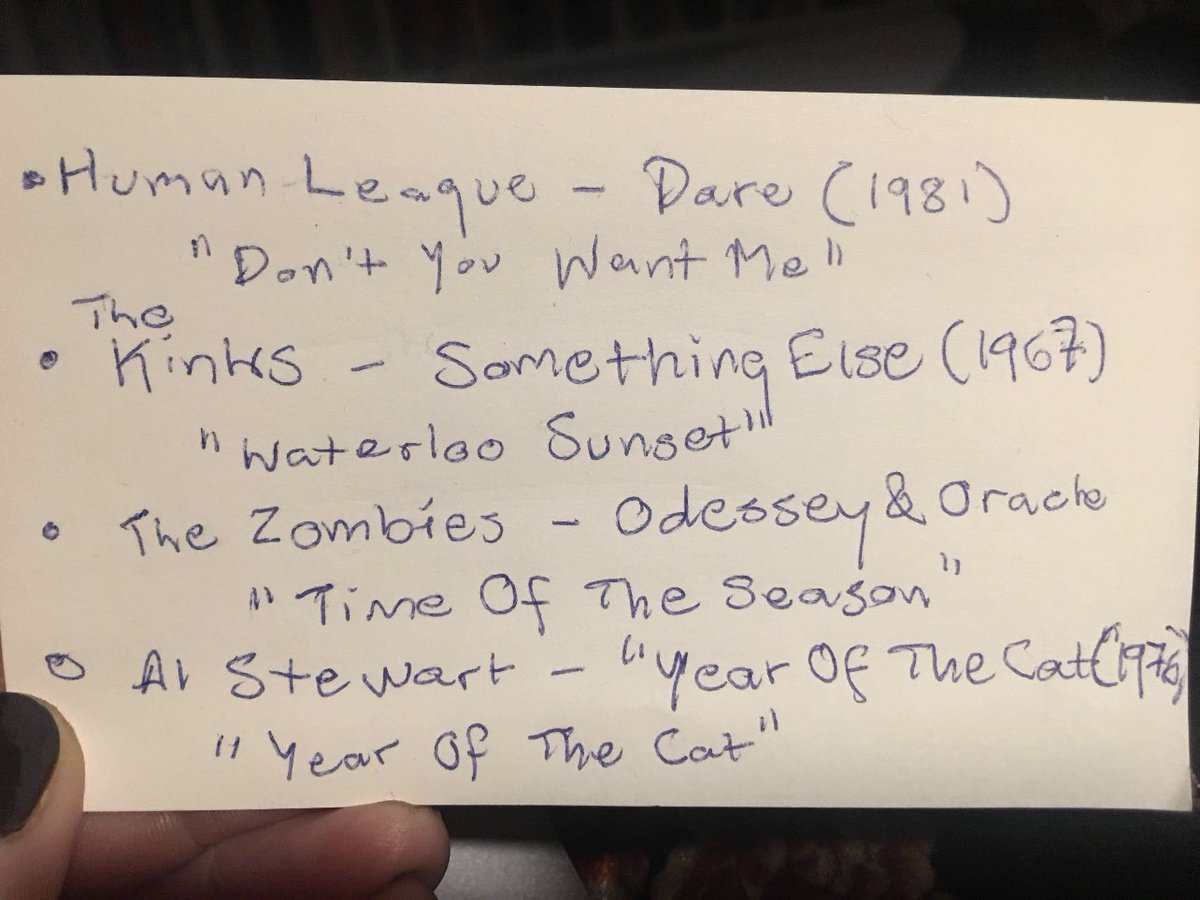 • Human League – Dare (1981)
"Don't You Want Me"
The
• Kinks – Something Else (1967)
"Waterloo Sunset"
• The Zombies – Odessey & Oracle
"Time Of The Season"
• Al Stewart – "Year Of The Cat" (1976)
"Year Of The Cat"